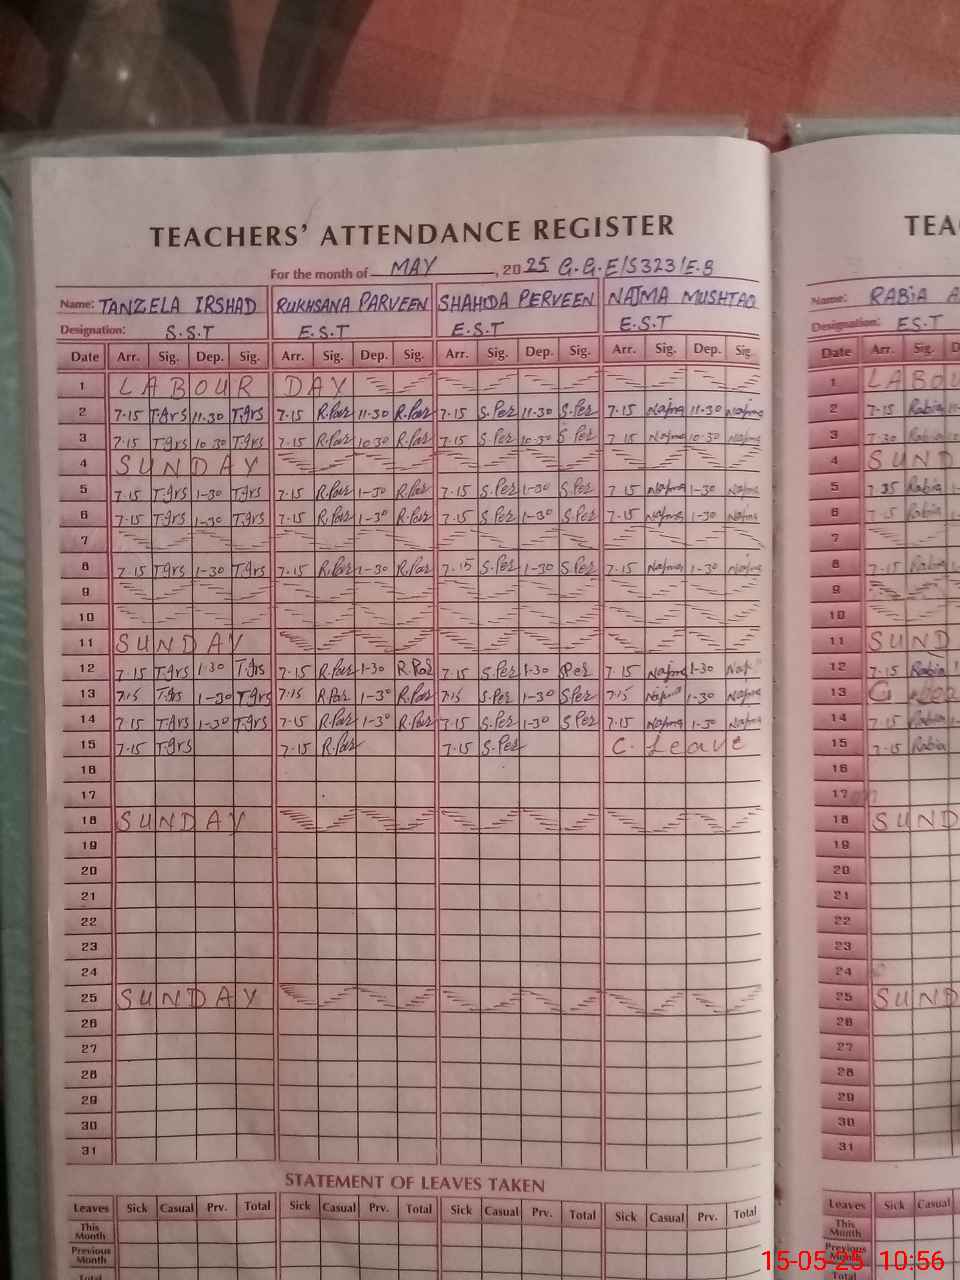 TEACHERS' ATTENDANCE REGISTER
For the month of MAY, 2025 G.G.E/S 323/E.B
Name: TANZELA IRSHAD RUKHSANA PARVEEN SHAHIDA PERVEEN NAJMA MUSHTAQ
Designation: S.S.T E.S.T E.S.T E.S.T
Date Arr. Sig. Dep. Sig. Arr. Sig. Dep. Sig. Arr. Sig. Dep. Sig. Arr. Sig. Dep. Sig.
1 LABOUR DAY
2 7-15 T.Grs 11-30 T.Grs 7-15 R.Par 11-30 R.Par 7-15 S.Per 11-30 S.Per 7-15 Najma 11-30 Najma
3 7-15 T.Grs 10-30 T.Grs 7-15 R.Par 10-30 R.Par 7-15 S.Per 10-30 S Per 7 15 Najma 10-30 Najma
4 SUNDAY
5 7-15 T.Grs 1-30 T.Grs 7-15 R.Par 1-30 R.Par 7-15 S.Per 1-30 S.Per 7 15 Najma 1-30 Najma
6 7-15 T.Grs 1-30 T.Grs 7-15 R.Par 1-30 R.Par 7-15 S.Per 1-30 S.Per 7-15 Najma 1-30 Najma
7
8 7-15 T.Grs 1-30 T.Grs 7-15 R.Par 1-30 R.Par 7-15 S.Per 1-30 S.Per 7-15 Najma 1-30 Najma
9
10
11 SUNDAY
12 7-15 T.Grs 1-30 T.Grs 7-15 R.Par 1-30 R.Par 7-15 S.Per 1-30 S.Per 7-15 Najma 1-30
13 7-15 T.Grs 1-30 T.Grs 7-15 R.Par 1-30 R.Par 7-15 S.Per 1-30 S.Per 7-15 Najma 1-30 Najma
14 7-15 T.Grs 1-30 T.Grs 7-15 R.Par 1-30 R.Par 7-15 S.Per 1-30 S.Per 7-15 Najma 1-30 Najma
15 7-15 T.Grs 7-15 R.Par 7-15 S.Per C. Leave
16
17
18 SUNDAY
19
20
21
22
23
24
25 SUNDAY
26
27
28
29
30
31
STATEMENT OF LEAVES TAKEN
Leaves Sick Casual Prv. Total Sick Casual Prv. Total Sick Casual Prv. Total Sick Casual Prv. Total
This Month
Previous Month
Total
TEA
Name: RABIA A
Designation: EST
Date Arr. Sig. D
1 LABOU
2 7-15 Rabia
3 7-30 Rabia
4 SUND
5 7 35 Rabia
6 7-15 Rabia
7
8 7-15 Rabia
9
10
11 SUND
12 7-15 Rabia
13 C
14 7-15 Rabia
15 7-15 Rabia
16
17
18 SUND
19
20
21
22
23
24
25 SUND
26
27
28
29
30
31
Leaves Sick Casual
This Month
Previous Month
Total
15-05-25 10:56